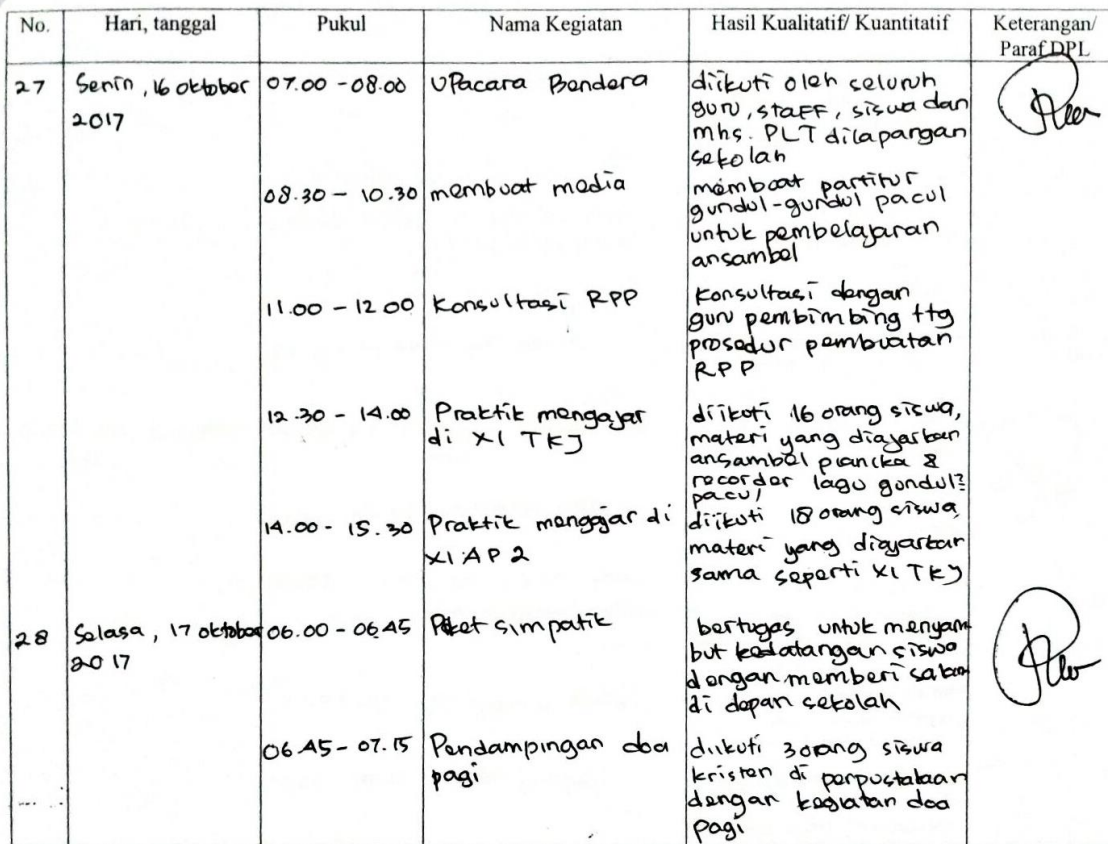 No. Hari, tanggal Pukul Nama Kegiatan Hasil Kualitatif/ Kuantitatif Keterangan/
Paraf DPL
27 Senin, 16 oktober 07.00 - 08.00 UPacara Bendera diikuti oleh seluruh
2017 guru, staff, siswa dan
mhs. PLT dilapangan
sekolah
08.30 - 10.30 membuat media membuat partitur
gundul-gundul pacul
untuk pembelajaran
ansambel
11.00 - 12 00 Konsultasi RPP Konsultasi dengan
guru pembimbing ttg
prosedur pembuatan
RPP
12.30 - 14.00 Praktik mengajar diikuti 16 orang siswa,
di XI TKJ materi yang diajarkan
ansambel pianika &
recorder lagu gundul²
pacul
14.00 - 15.30 Praktik mengajar di diikuti 18 orang siswa,
XI AP 2 materi yang diajarkan
sama seperti XI TKJ
28 Selasa, 17 oktober 06.00 - 06.45 Piket simpatik bertugas untuk menyam
2017 but kedatangan siswa
dengan memberi
di depan sekolah
06.45 - 07.15 Pendampingan doa diikuti 3 orang siswa
pagi kristen di perpustakaan
dengan kegiatan doa
pagi